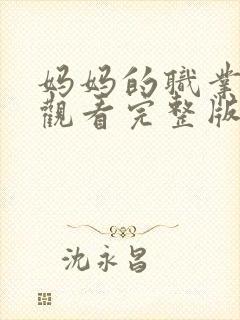 妈妈的職業
觀看完整版
沈永昌